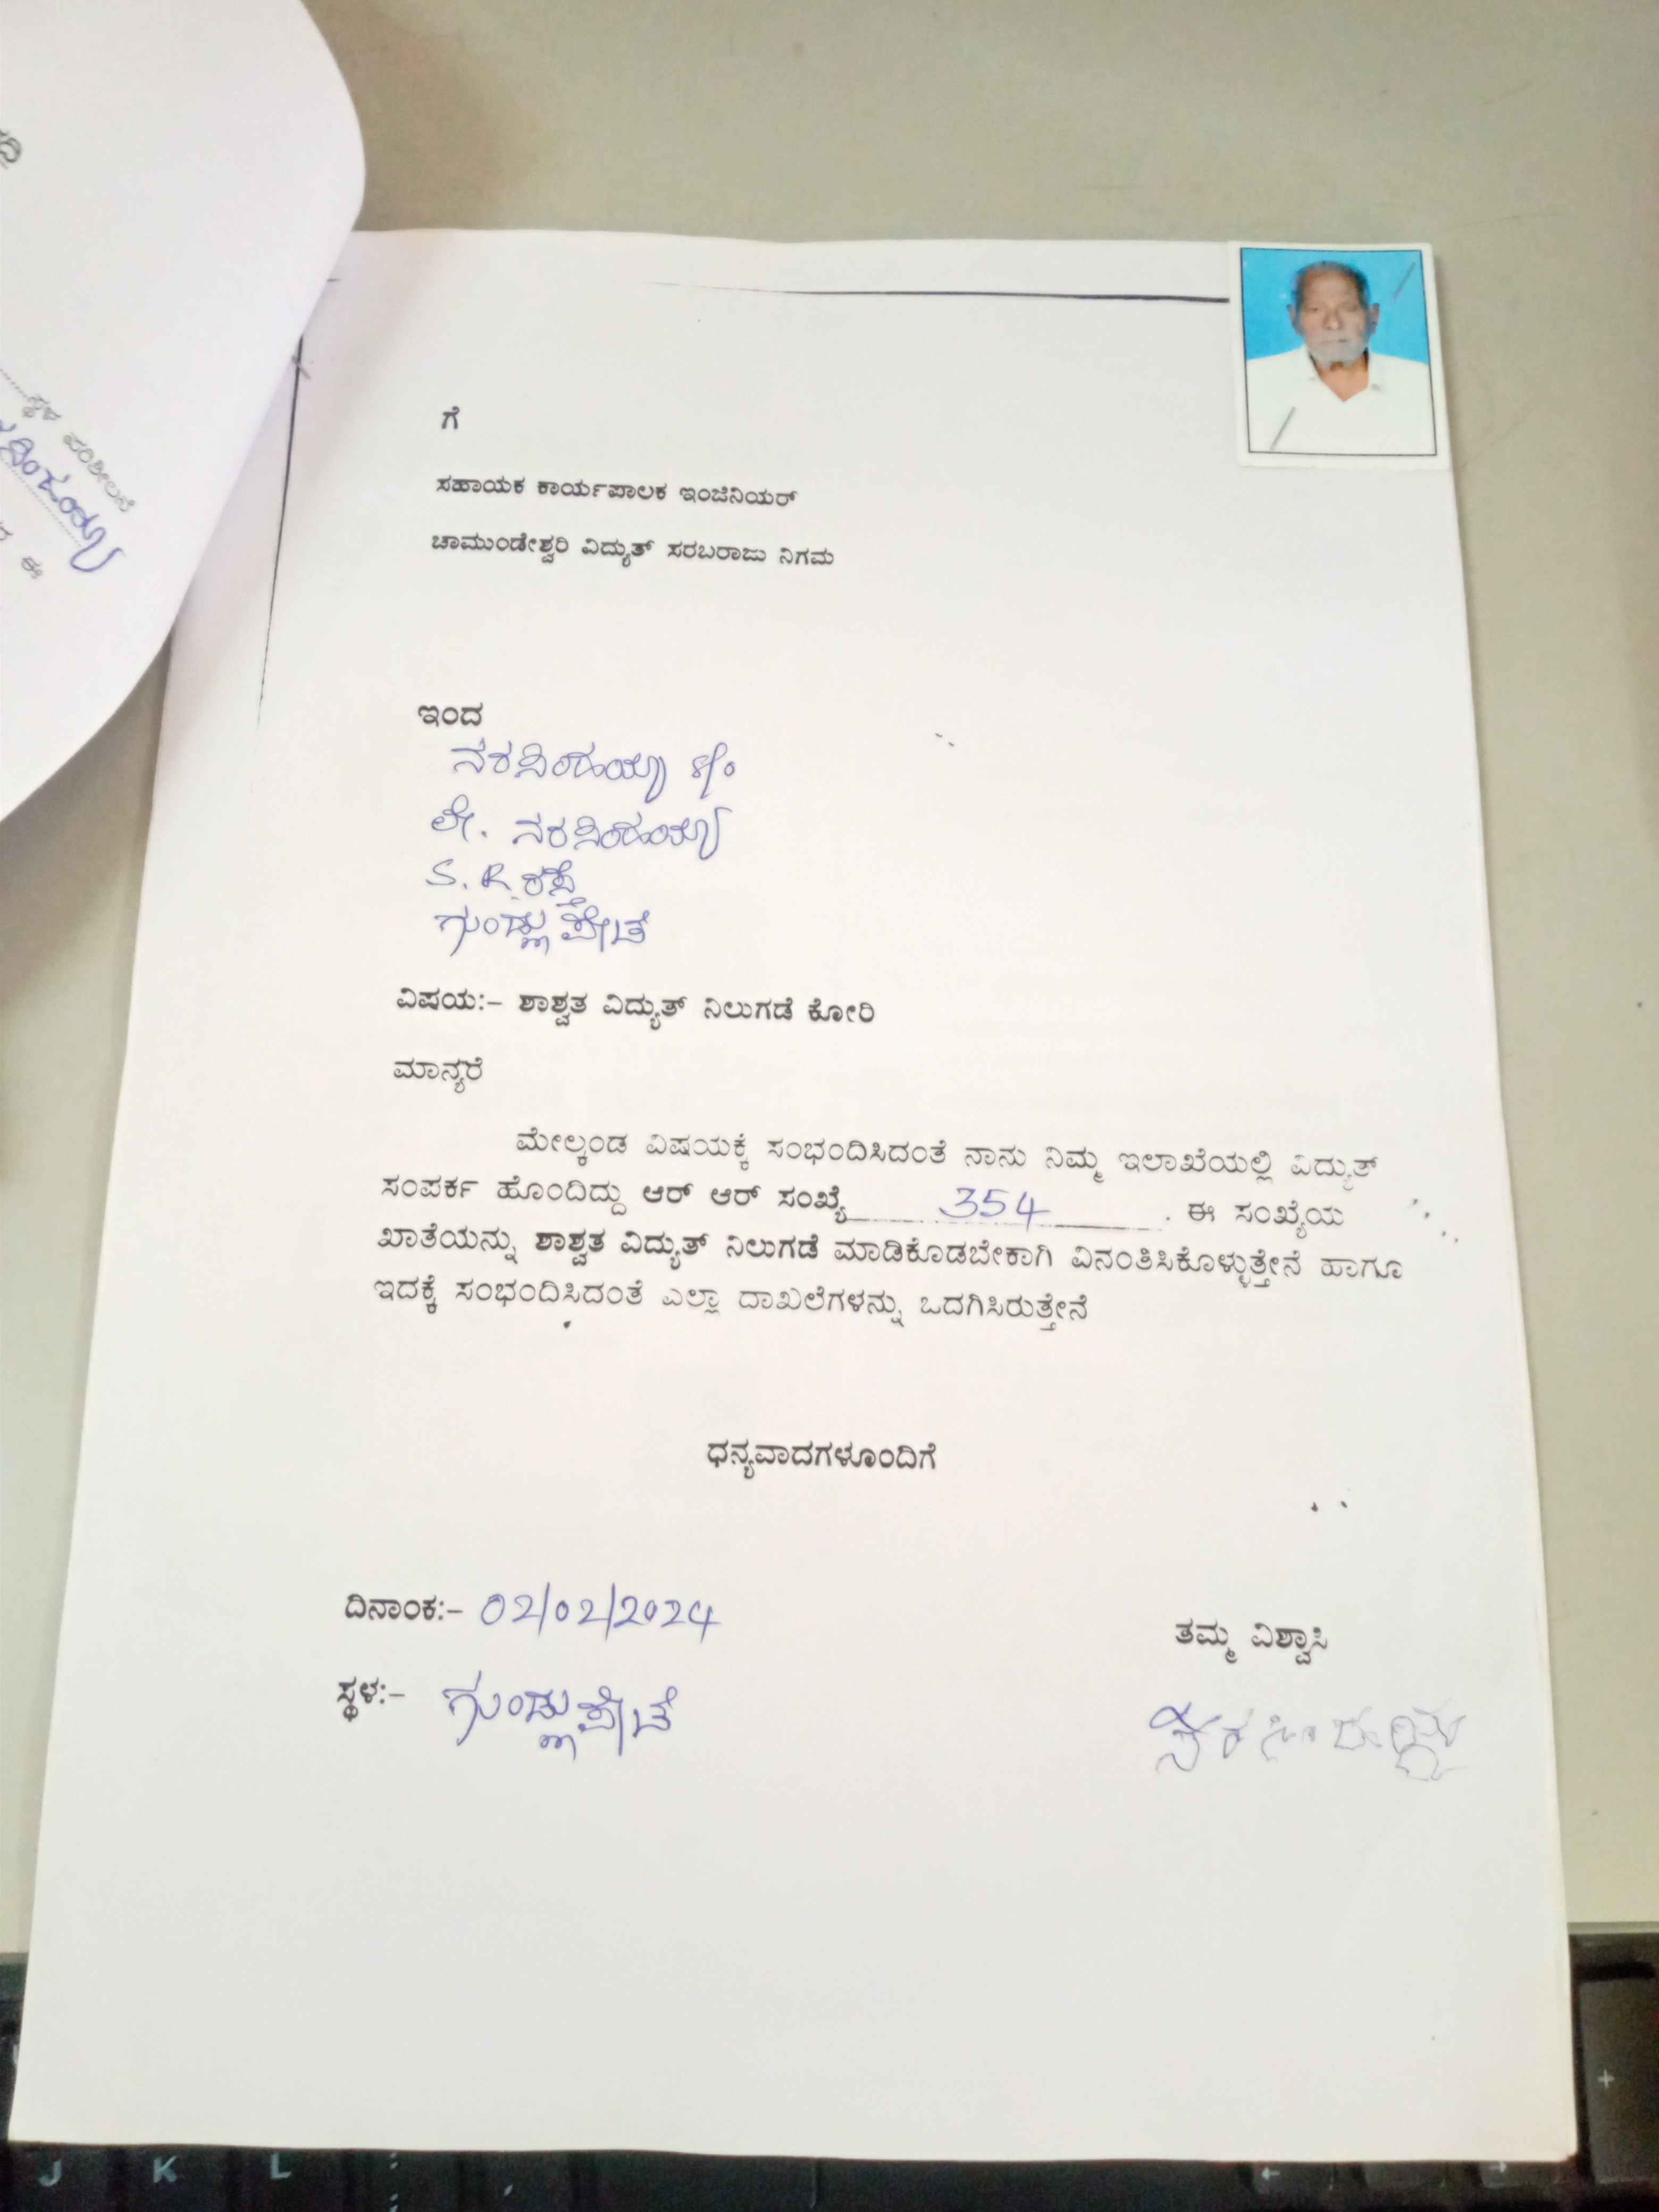 ಸ್ಥಳ ಪರಿಶೀಲನೆ
ಈ
ಗೆ
ಸಹಾಯಕ ಕಾರ್ಯಪಾಲಕ ಇಂಜಿನಿಯರ್
ಚಾಮುಂಡೇಶ್ವರಿ ವಿದ್ಯುತ್ ಸರಬರಾಜು ನಿಗಮ
ಇಂದ
ನರಸಿಂಹಯ್ಯ s/o
ಲೇ. ನರಸಿಂಹಯ್ಯ
S. R ರಸ್ತೆ
ಗುಂಡ್ಲುಪೇಟೆ
ವಿಷಯ:- ಶಾಶ್ವತ ವಿದ್ಯುತ್ ನಿಲುಗಡೆ ಕೋರಿ
ಮಾನ್ಯರೆ
ಮೇಲ್ಕಂಡ ವಿಷಯಕ್ಕೆ ಸಂಭಂದಿಸಿದಂತೆ ನಾನು ನಿಮ್ಮ ಇಲಾಖೆಯಲ್ಲಿ ವಿದ್ಯುತ್
ಸಂಪರ್ಕ ಹೊಂದಿದ್ದು ಆರ್ ಆರ್ ಸಂಖ್ಯೆ 354 . ಈ ಸಂಖ್ಯೆಯ
ಖಾತೆಯನ್ನು ಶಾಶ್ವತ ವಿದ್ಯುತ್ ನಿಲುಗಡೆ ಮಾಡಿಕೊಡಬೇಕಾಗಿ ವಿನಂತಿಸಿಕೊಳ್ಳುತ್ತೇನೆ ಹಾಗೂ
ಇದಕ್ಕೆ ಸಂಭಂದಿಸಿದಂತೆ ಎಲ್ಲಾ ದಾಖಲೆಗಳನ್ನು ಒದಗಿಸಿರುತ್ತೇನೆ
ಧನ್ಯವಾದಗಳೂಂದಿಗೆ
ದಿನಾಂಕ:- 02/02/2024
ತಮ್ಮ ವಿಶ್ವಾಸಿ
ಸ್ಥಳ:- ಗುಂಡ್ಲುಪೇಟೆ
ನರಸಿಂಹಯ್ಯ
J K L